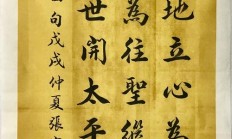 地立心為
為往聖繼
世開太平
句戊戌仲夏張